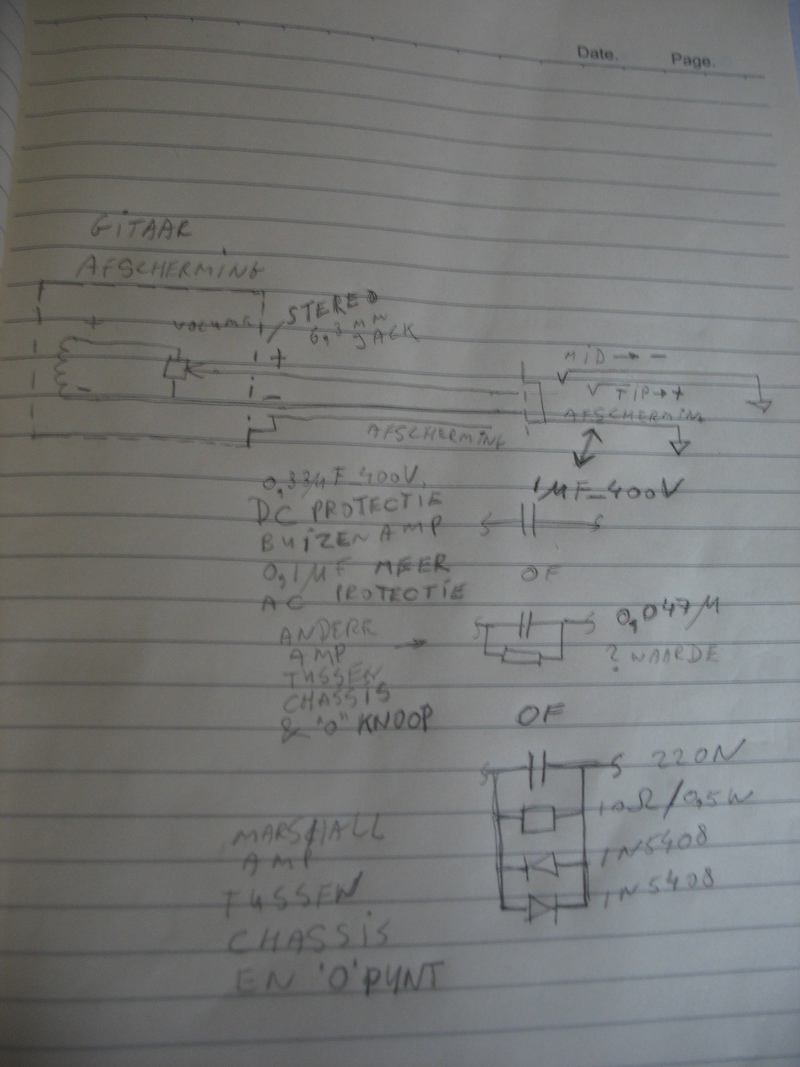 Date. Page.
GITAAR
AFSCHERMING
+ VOLUME STEREO
6,3 MM
JACK
+
MID → -
- TIP → +
- AFSCHERMING
AFSCHERMING
0,33µF 400V.
1µF 400V
DC PROTECTIE
BUIZEN AMP
0,1µF MEER
OF
AC PROTECTIE
0,047µ
ANDERE →
AMP
? WAARDE
TUSSEN
CHASSIS
& "0" KNOOP
OF
220N
10Ω/0,5W
MARSHALL
1N5408
AMP
1N5408
TUSSEN
CHASSIS
EN '0' PUNT